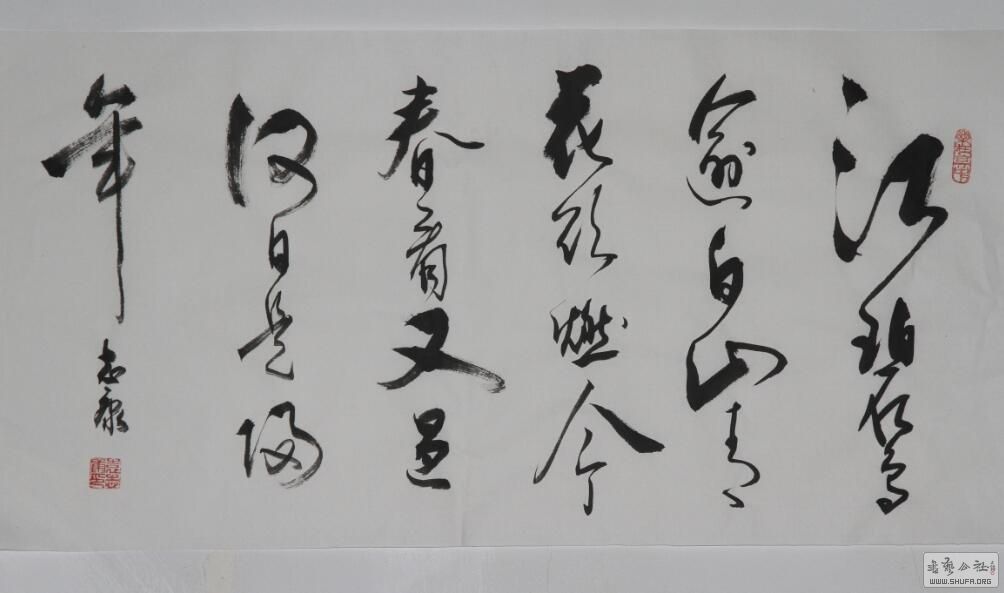 江碧鳥
逾白山青
花欲燃今
春看又過
何日是歸
年
志康
书艺公社
WWW.SHUFA.ORG